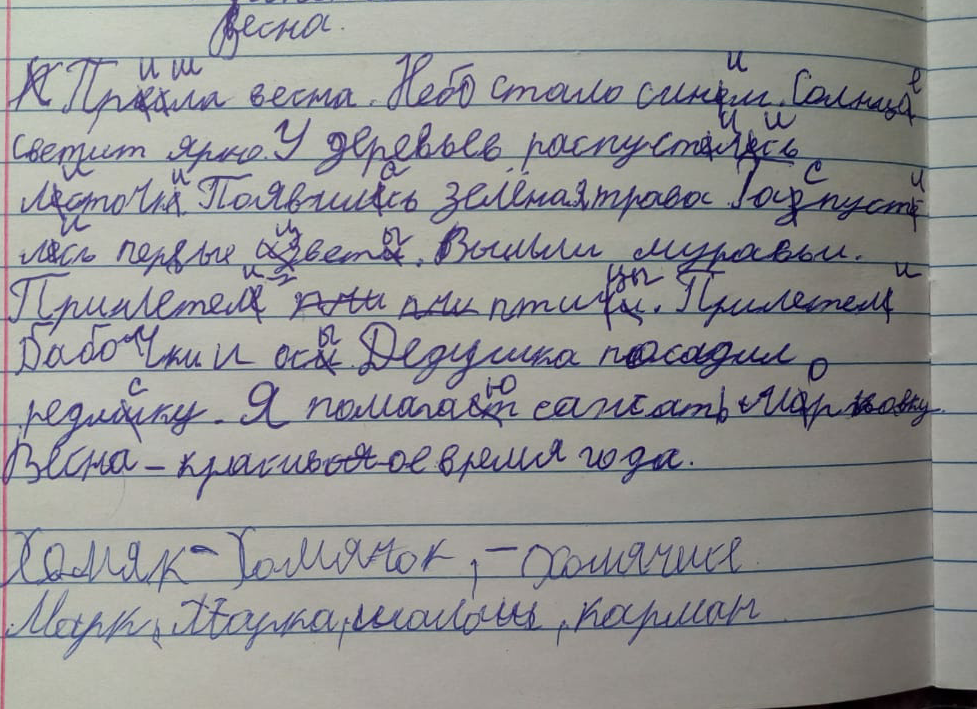 Весна.
Пришла весна. Небо стало синим. Солнце
светит ярко. У деревьев распустились
листочки. Появилась зелёная трава. Распусти
лись первые цветы. Вышли муравьи.
Прилетели птицы. Прилетели
бабочки и осы. Дедушка посадил
редиску. Я помагаю сажать морковку.
Весна – красивое время года.
Хомяк – Хомячок, – хомячихе
Марк, Шапка, шалаш, карман